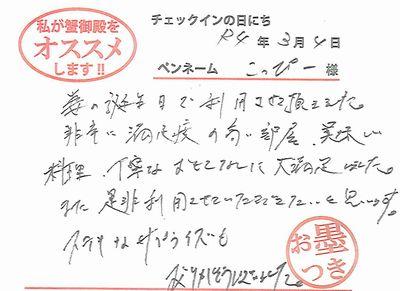 私が蟹御殿を
オススメ
します!!
チェックインの日にち
R4 年 3月 4日
ペンネーム こっぴー 様
妻の誕生日で利用させて頂きました。
非常に満足度の高い部屋、美味しい
料理、丁寧なおもてなしに大満足でした。
また是非利用させていただきたいと思います。
ステキなサプライズも
ありがとうございました。
お墨
つき